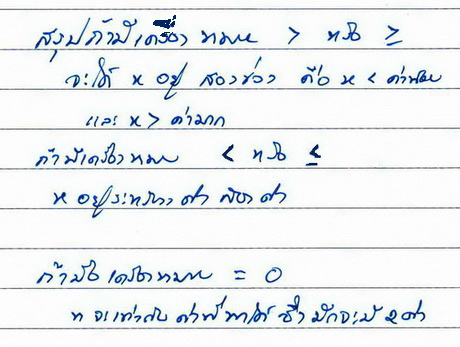 สรุปถ้ามีเครื่องหมาย > หรือ ≥
จะได้ x อยู่ สองช่วง คือ x < ค่าน้อย
และ x > ค่ามาก
ถ้ามีเครื่องหมาย < หรือ ≤
x อยู่ระหว่าง ค่า สองค่า
ถ้ามีเครื่องหมาย = 0
x จะเท่ากับ ค่าที่หาได้ ซึ่งมักจะมี 2 ค่า